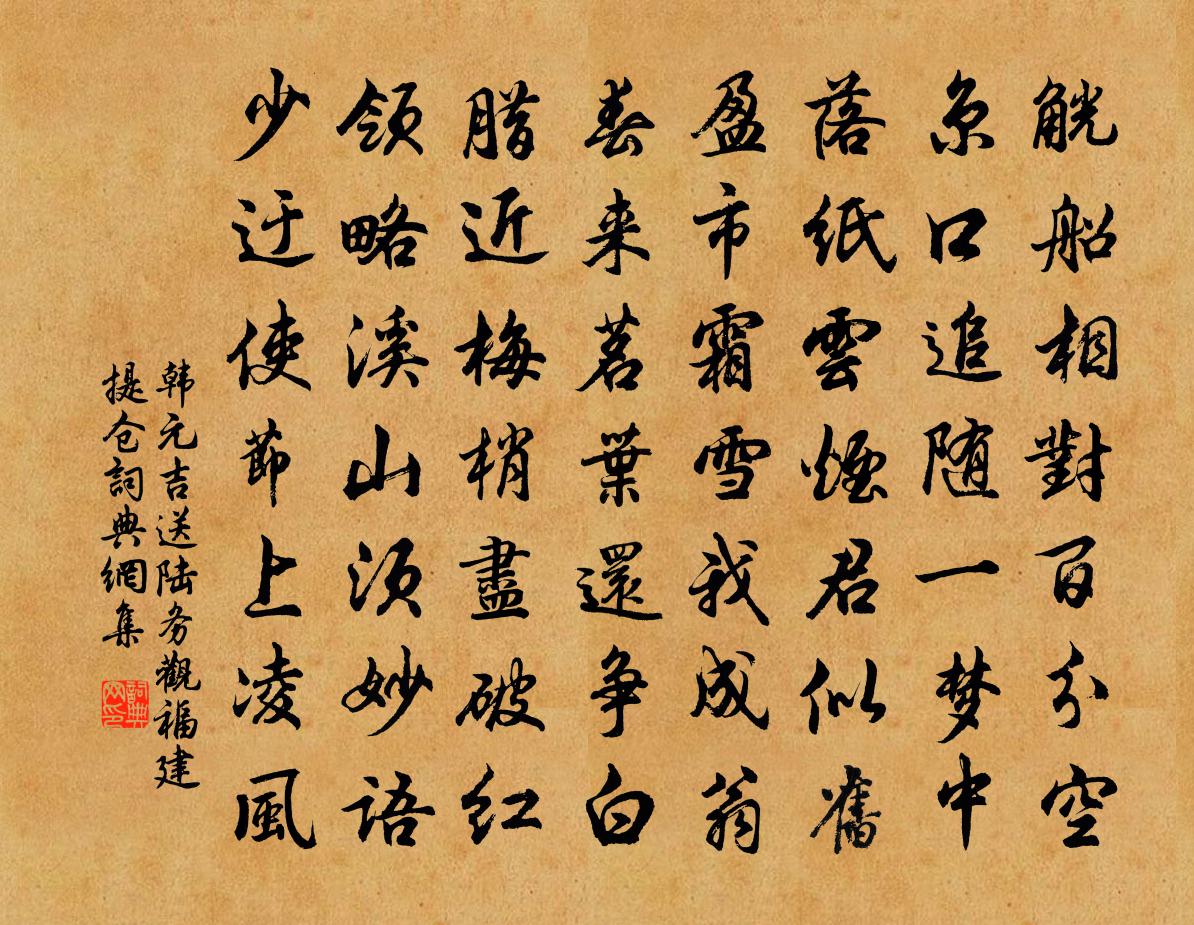 觥船相對百分空
京口追随一梦中
落紙雲煙君似舊
盈市霜雪我成翁
春来茗葉還争白
腊近梅梢盡破红
领略溪山须妙語
少迂使節上凌風
韩元吉送陆务觀福建
提仓詞典網集
詞典网印